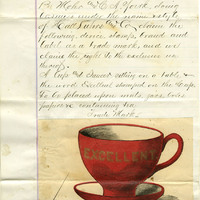 & C. A. Yorck doing
business under the name & style
of & Co. claim the
following device, stamp, brand and
label as a trade mark, and we
claim the right to the exclusive use
thereof
A Cup & Saucer sitting on a table, &
the word Excellent stamped on the Cup
To be placed upon
papers containing tea
Trade Mark.
EXCELLENT